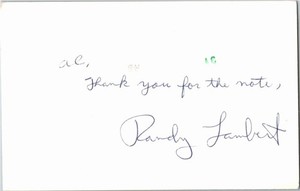 al,
Thank you for the note,
Randy Lambert